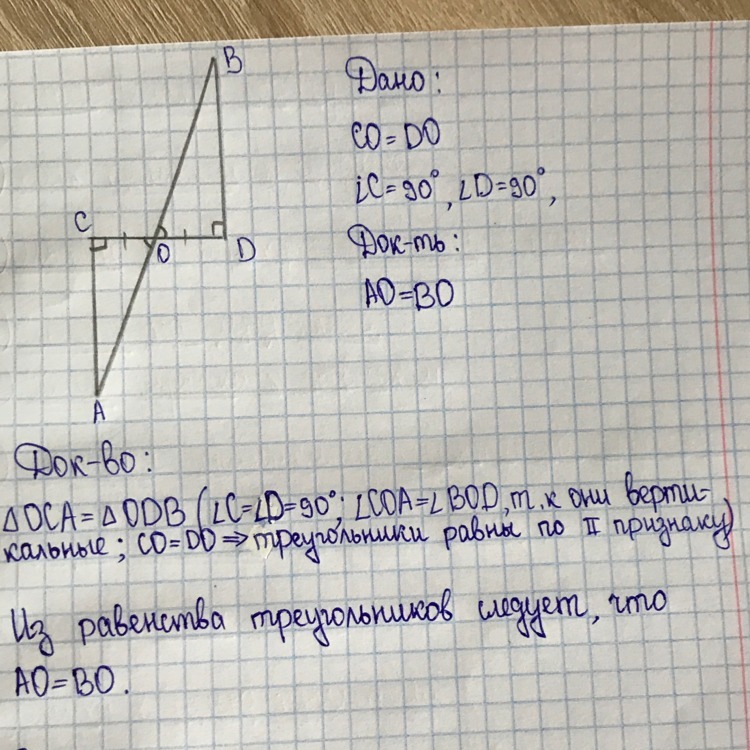 B
Дано:
CO=DO
∠C=90°, ∠D=90°,
C
O
D
Док-ть:
AO=BO
A
Док-во:
△OCA=△ODB (∠C=∠D=90°; ∠COA=∠BOD, т.к они верти-
кальные; CO=DO ⇒ треугольники равны по II признаку)
Из равенства треугольников следует, что
AO=BO.